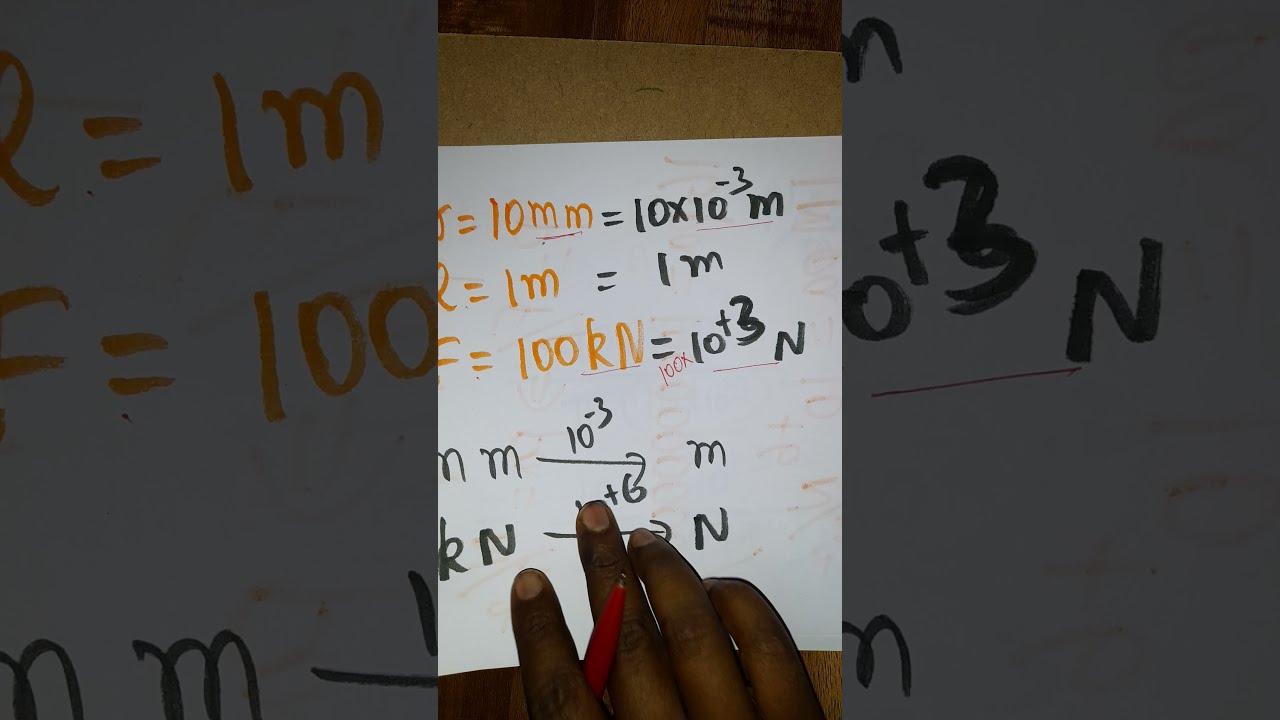 r = 10mm = 10×10⁻³ m
l = 1m = 1m
F = 100kN = 100× 10⁺³ N
mm 10⁻³ → m
kN ⁺⁶ → N